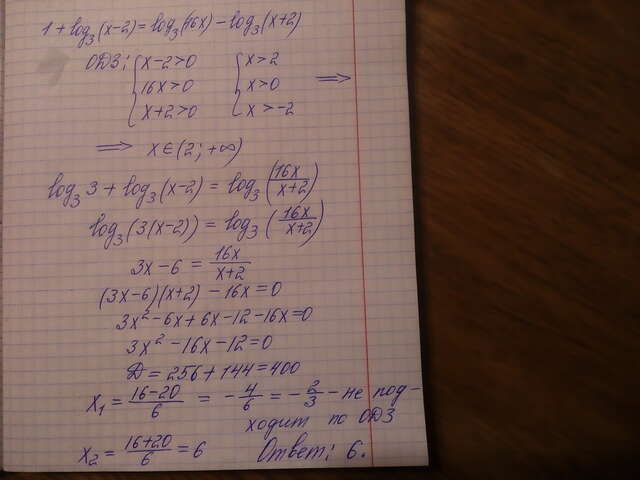 1 + log₃(x-2) = log₃(16x) - log₃(x+2)
ОДЗ: { x-2>0 { x>2
16x>0 x>0 ⟹
x+2>0 x>-2
⟹ x∈(2; +∞)
log₃ 3 + log₃(x-2) = log₃(16x/(x+2))
log₃(3(x-2)) = log₃(16x/(x+2))
3x-6 = 16x/(x+2)
(3x-6)(x+2) - 16x = 0
3x² - 6x + 6x - 12 - 16x = 0
3x² - 16x - 12 = 0
D = 256 + 144 = 400
x₁ = (16-20)/6 = -4/6 = -2/3 - не под-
ходит по ОДЗ
x₂ = (16+20)/6 = 6 Ответ: 6.